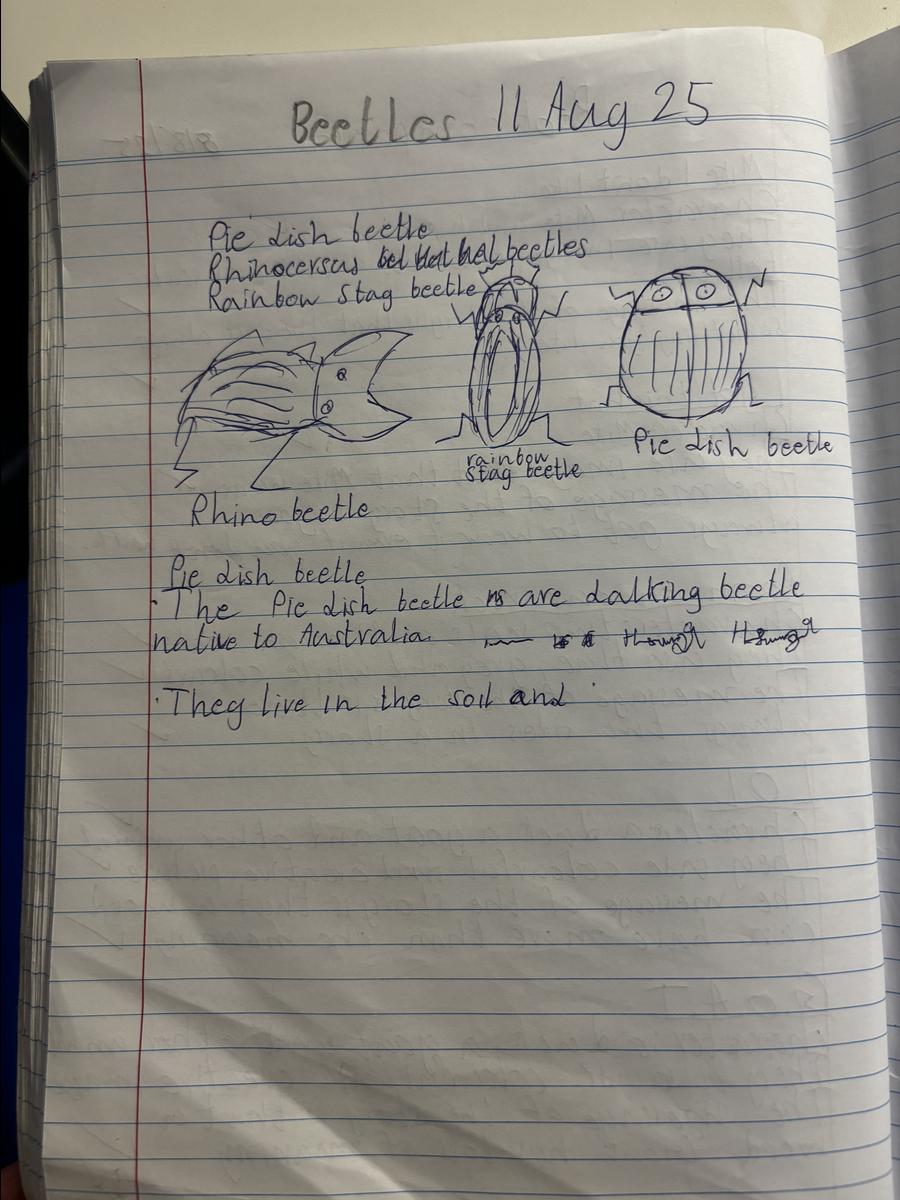 Beetles 11 Aug 25
Pie dish beetle
Rhinocersus beetles
Rainbow Stag beetle
rainbow
stag beetle
Pie dish beetle
Rhino beetle
Pie dish beetle
· The Pie dish beetle are dalking beetle
native to Australia.
· They live in the soil and